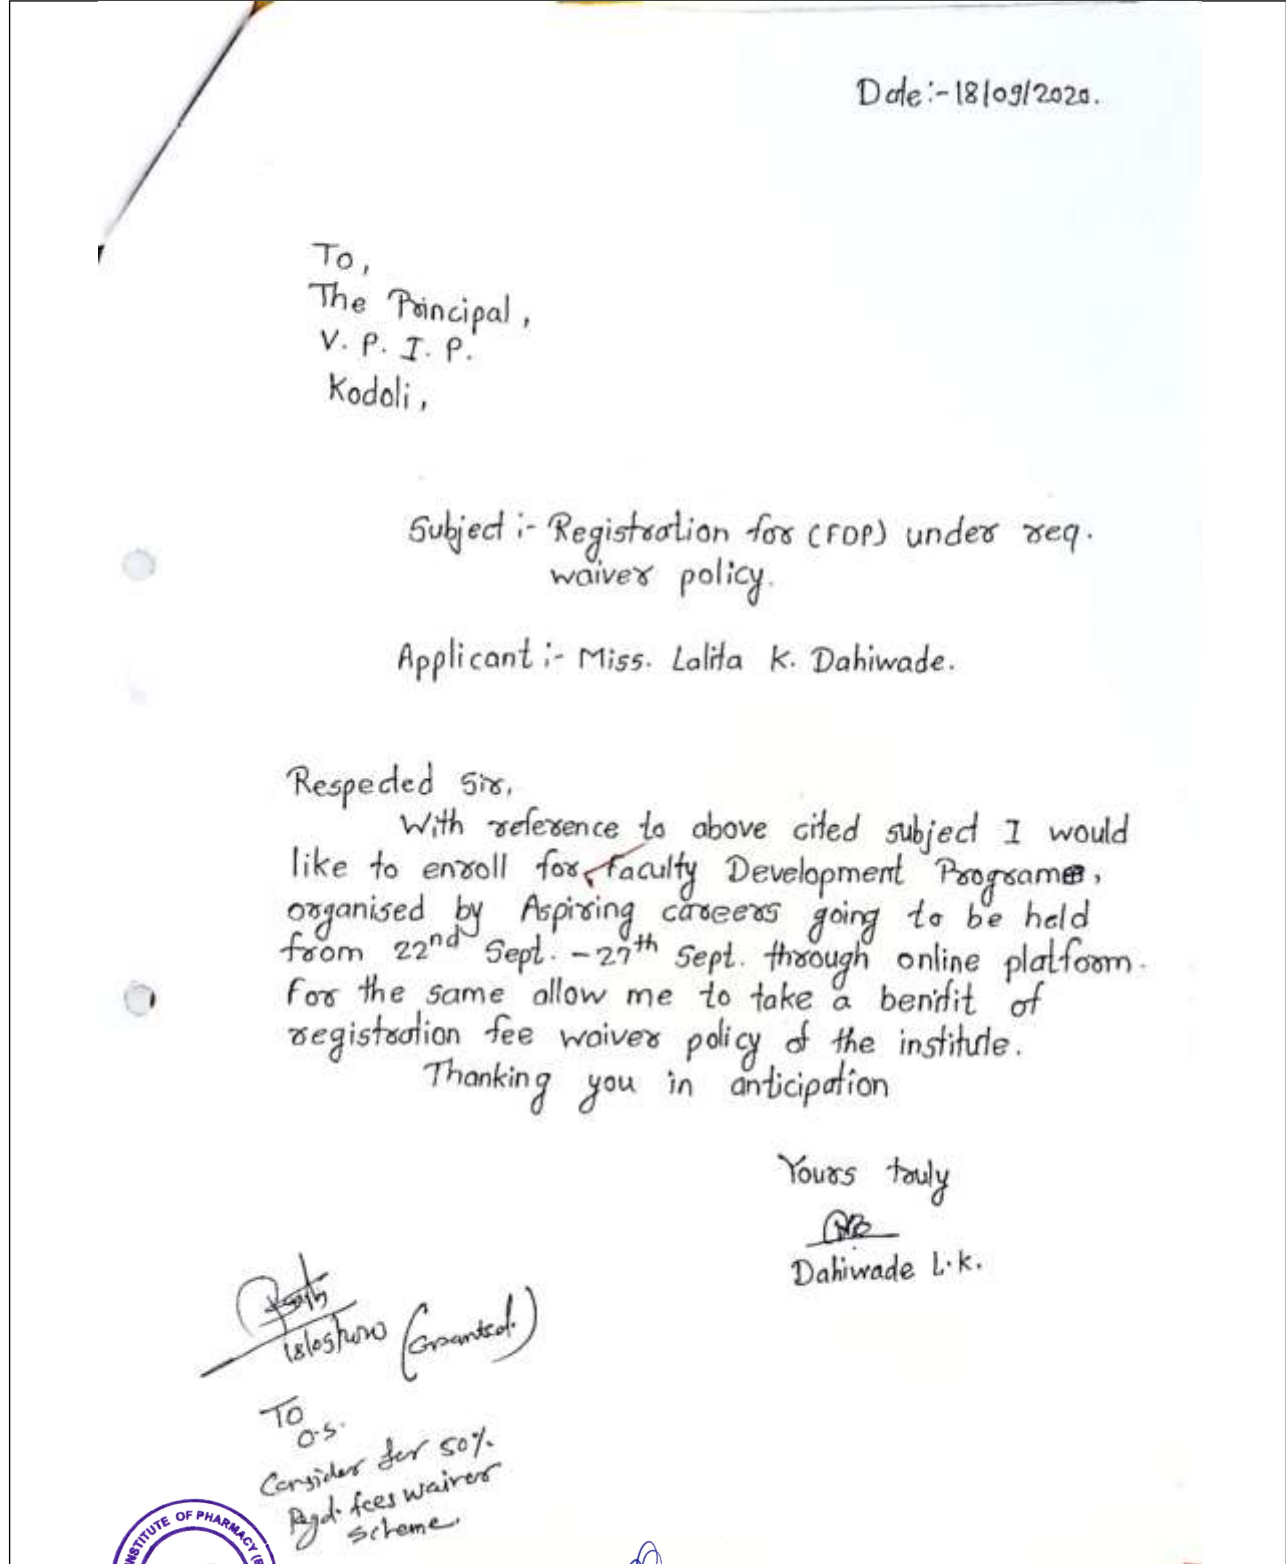 Date:- 18/09/2020.
To,
The Principal,
V. P. I. P.
Kodoli,
Subject :- Registration for (FDP) under req.
waiver policy.
Applicant :- Miss. Lalita K. Dahiwade.
Respected Sir,
With reference to above cited subject I would
like to enroll for Faculty Development Programe,
organised by Aspiring careers going to be held
from 22nd Sept. - 27th Sept. through online platform.
For the same allow me to take a benifit of
registration fee waiver policy of the institute.
Thanking you in anticipation
Yours truly
Dahiwade L.K.
(Granted.)
To
O.S.
Consider for 50%
Regd. fees waiver
scheme.
INSTITUTE OF PHARMACY